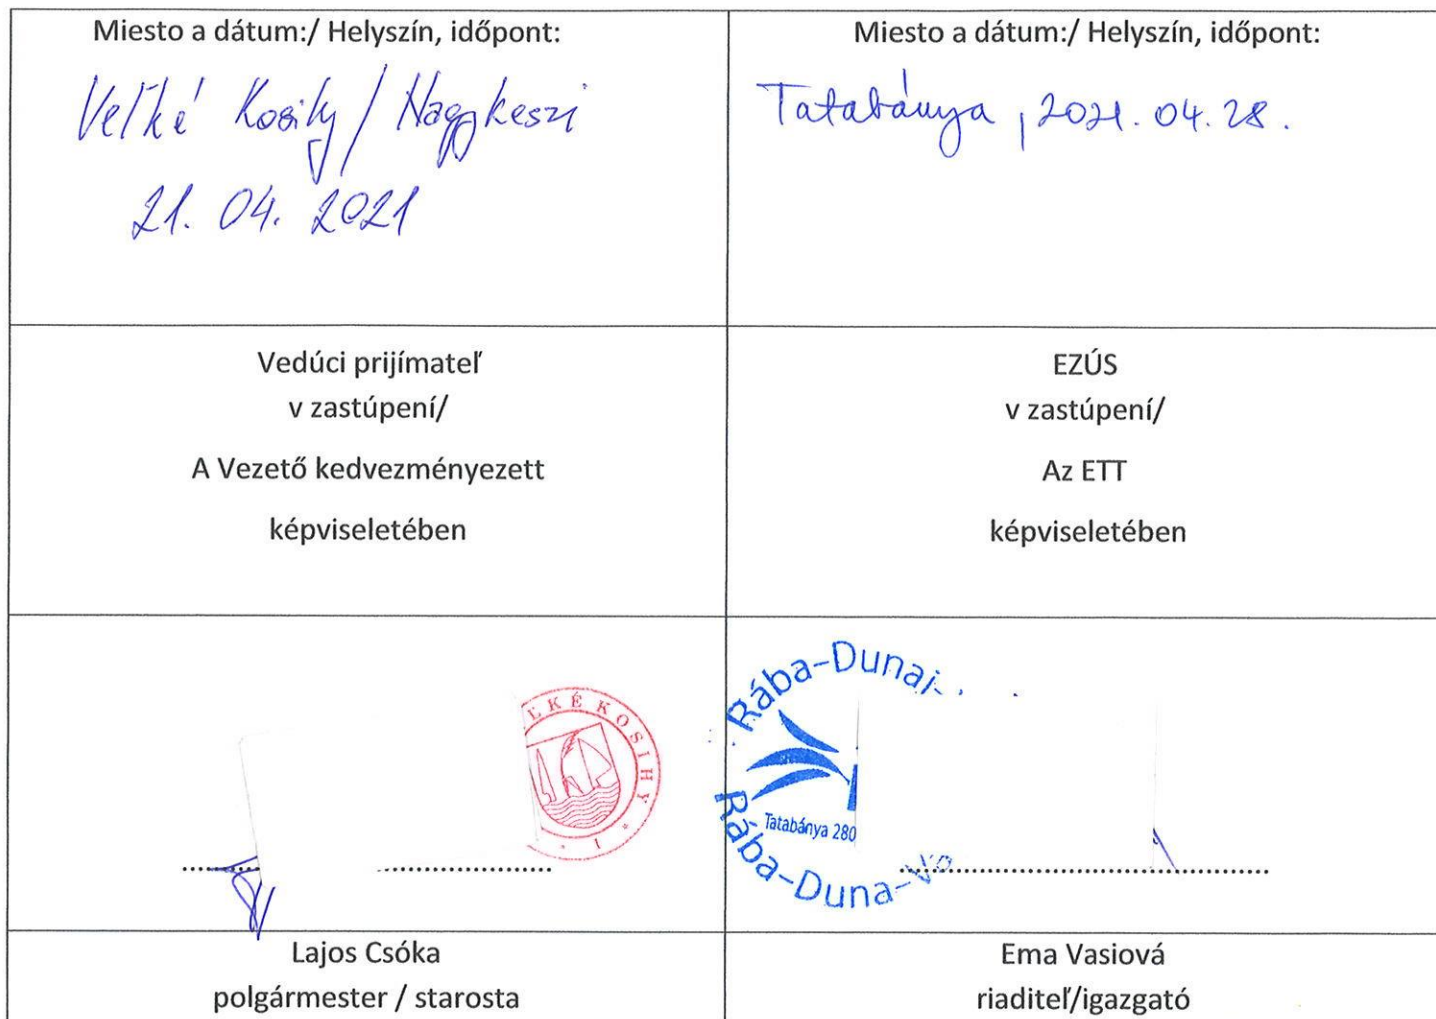 Miesto a dátum:/ Helyszín, időpont:
Veľké Kosihy / Nagykeszi
21. 04. 2021
Miesto a dátum:/ Helyszín, időpont:
Tatabánya, 2021. 04. 28.
Vedúci prijímateľ
v zastúpení/
A Vezető kedvezményezett
képviseletében
EZÚS
v zastúpení/
Az ETT
képviseletében
ĽKÉ KOSIHY * 1 *
Rába-Dunaj-
Tatabánya 280
Rába-Duna-V
Lajos Csóka
polgármester / starosta
Ema Vasiová
riaditeľ/igazgató